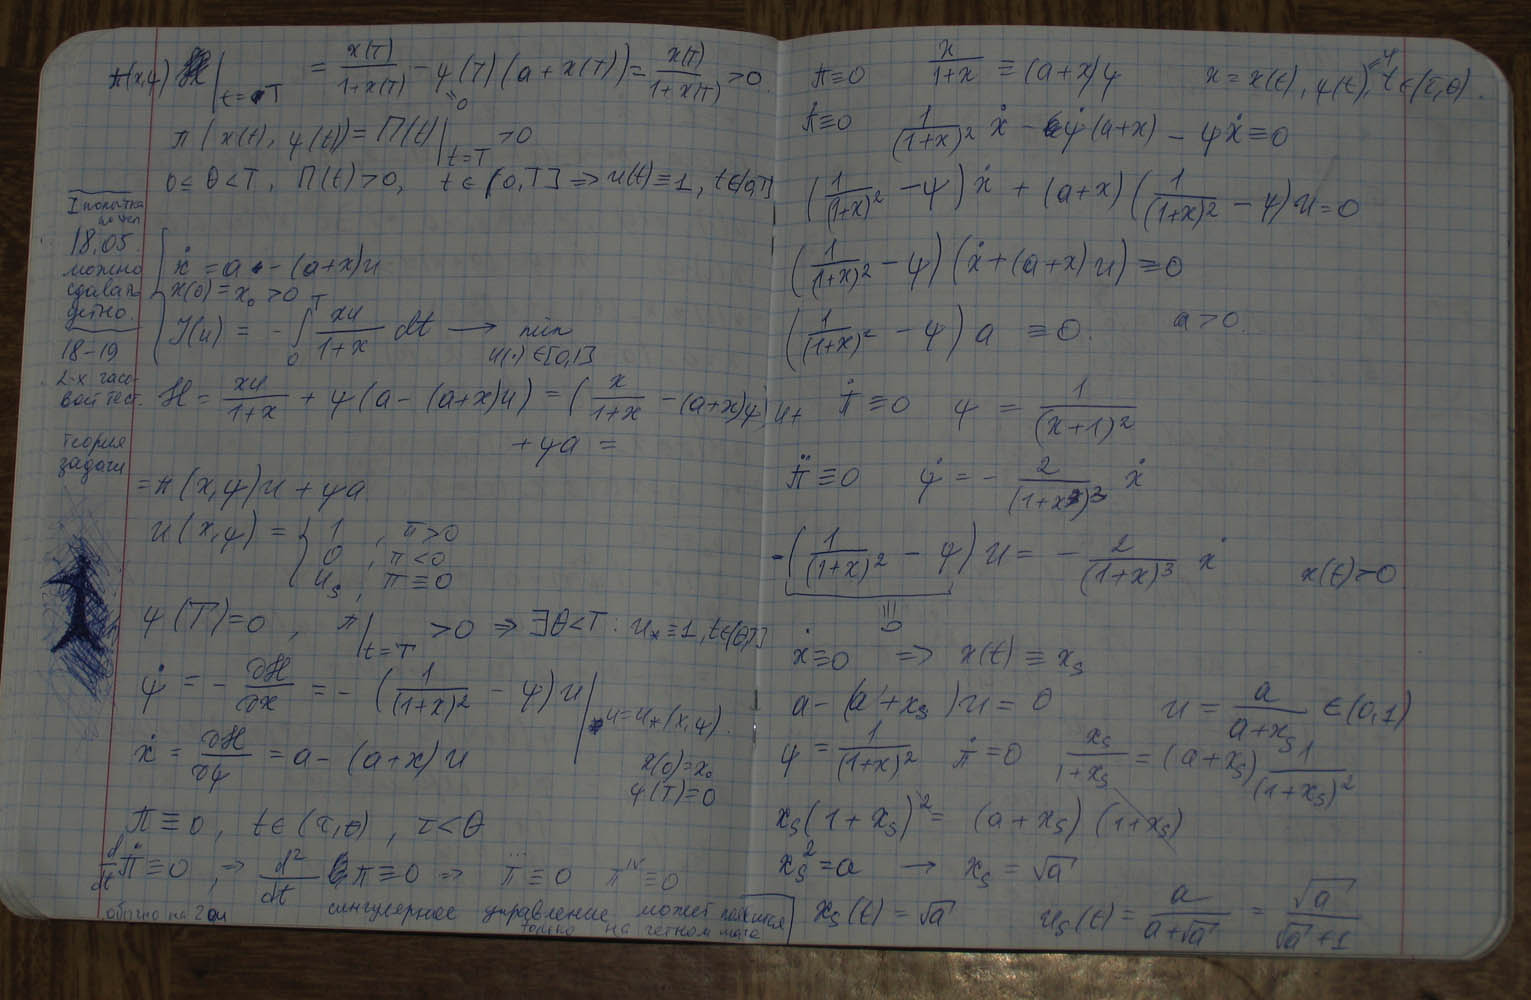 π(x,ψ)|t=T = x(T)/(1+x(T)) − ψ(T)(a+x(T)) = x(T)/(1+x(T)) > 0.
=0
π(x(t), ψ(t)) = Π(t)|t=T > 0
0 ≤ θ < T, Π(t) > 0, t ∈ (θ,T] ⇒ u(t) ≡ 1, t ∈ (θ,T]
I попытка
18.05.
можно
сдавать
устно.
18-19
2-х часо-
вой тест.
теория
задачи
ẋ = a − (a+x)u
x(0) = x₀ > 0
J(u) = − ∫₀ᵀ xu/(1+x) dt → min u(·) ∈ [0,1]
ℋ = xu/(1+x) + ψ(a − (a+x)u) = (x/(1+x) − (a+x)ψ)u +
+ ψa =
= π(x,ψ)u + ψa
u(x,ψ) = { 1 , π > 0
0 , π < 0
u_s , π ≡ 0
ψ(T) = 0 , π|t=T > 0 ⇒ ∃θ<T : u_* ≡ 1, t∈(θ,T]
ψ̇ = − ∂ℋ/∂x = − (1/(1+x)² − ψ)u |u=u_*(x,ψ).
ẋ = ∂ℋ/∂ψ = a − (a+x)u
x(0) = x₀
ψ(T) = 0
π ≡ 0 , t ∈ (τ,θ) , τ < θ
d/dt π ≡ 0 , ⇒ d²/dt π ≡ 0 ⇒ π⃛ ≡ 0 π^IV ≡ 0
обычно на 2ом сингулярное управление может появиться
только на четном шаге
π ≡ 0 x/(1+x) ≡ (a+x)ψ x = x(t), ψ(t) = ψ, t ∈ (τ,θ).
π̇ ≡ 0 1/(1+x)² ẋ − ψ̇(a+x) − ψẋ ≡ 0
(1/(1+x)² − ψ)ẋ + (a+x)(1/(1+x)² − ψ)u = 0
(1/(1+x)² − ψ)(ẋ + (a+x)u) ≡ 0
(1/(1+x)² − ψ)a ≡ 0. a > 0.
π̇ ≡ 0 ψ = 1/(x+1)²
π̈ ≡ 0 ψ̇ = − 2/(1+x)³ ẋ
−(1/(1+x)² − ψ)u = − 2/(1+x)³ ẋ x(t) > 0
≡
0
ẋ ≡ 0 ⇒ x(t) ≡ x_s
a − (a + x_s)u = 0 u = a/(a+x_s) ∈ (0,1)
ψ = 1/(1+x)² π̇ = 0 x_s/(1+x_s) = (a+x_s) 1/(1+x_s)²
x_s(1+x_s)² = (a+x_s)(1+x_s)
x_s² = a → x_s = √a
x_s(t) = √a u_s(t) = a/(a+√a) = √a/(√a+1)